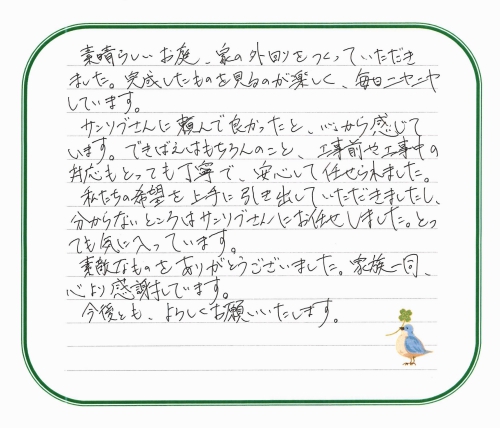 素晴らしいお庭、家の外回りをつくっていただき
ました。完成したものを見るのが楽しく、毎日ニヤニヤ
しています。
サンリブさんに頼んで良かったと、心から感じて
います。できばえはもちろんのこと、工事前や工事中の
対応もとっても丁寧で、安心して任せられました。
私たちの希望を上手に引き出していただきましたし、
分からないところはサンリブさんにお任せしました。とっ
ても気に入っています。
素敵なものをありがとうございました。家族一同、
心より感謝しています。
今後とも、よろしくお願いいたします。